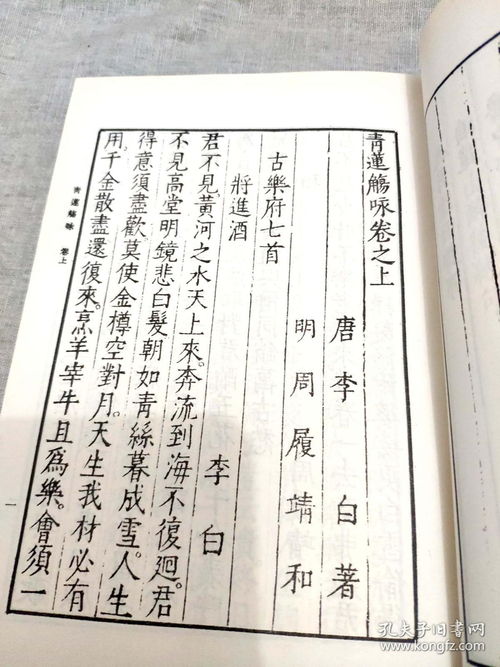 青蓮觴咏卷之上
唐李白著
明周履靖和
古樂府七首
將進酒
李白
君不見黃河之水天上來。奔流到海不復迴。君
不見高堂明鏡悲白髮朝如青絲暮成雪。人生
得意須盡歡。莫使金樽空對月。天生我材必有
用。千金散盡還復來。烹羊宰牛且爲樂。會須一
青蓮觴咏 卷上
一
孔夫子旧书网
www.kongfz.com